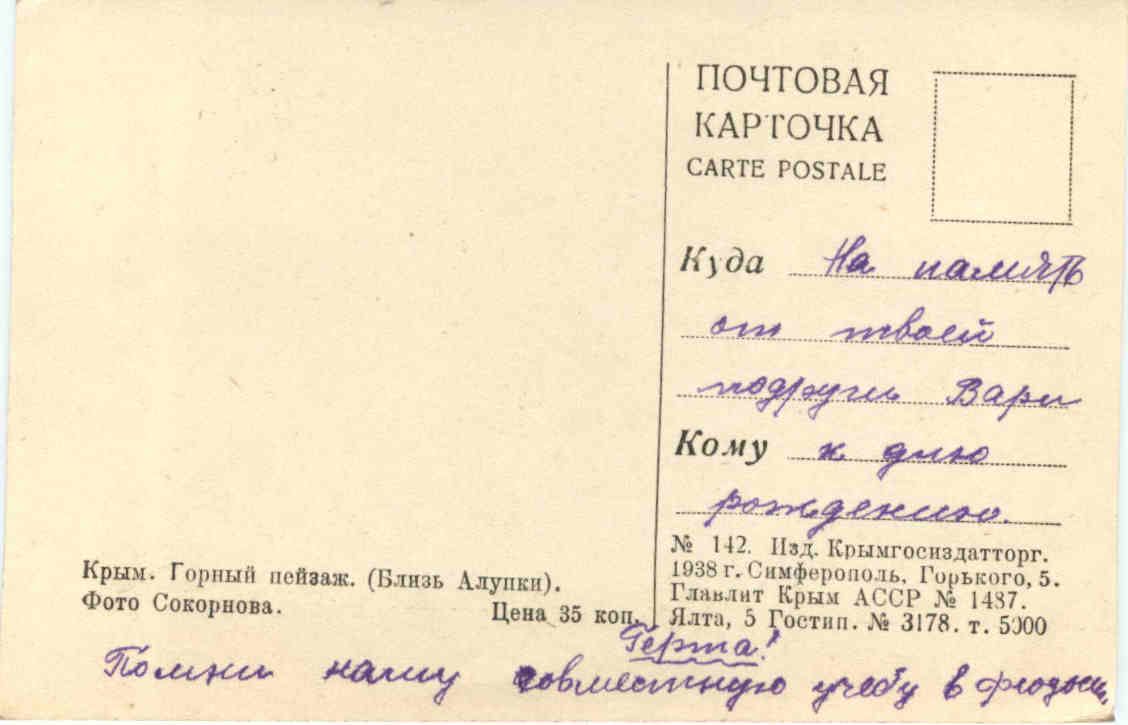 ПОЧТОВАЯ
КАРТОЧКА
CARTE POSTALE
Куда На память
от твоей
подруги Вари
Кому к дню
рождению.
№ 142. Изд. Крымгосиздатторг.
1938 г. Симферополь, Горького, 5.
Главлит Крым АССР № 1487.
Ялта, 5 Гостип. № 3178. т. 5000
Крым. Горный пейзаж. (Близь Алупки).
Фото Сокорнова. Цена 35 коп.
Герта!
Помни нашу совместную учебу в Феодосии,